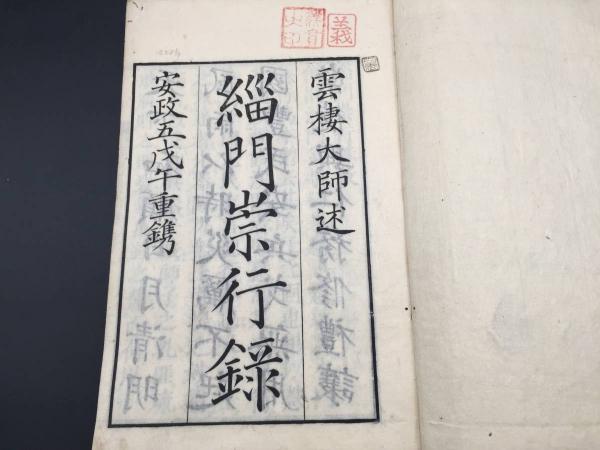 雲棲大師述
緇門崇行錄
安政五戊午重鐫